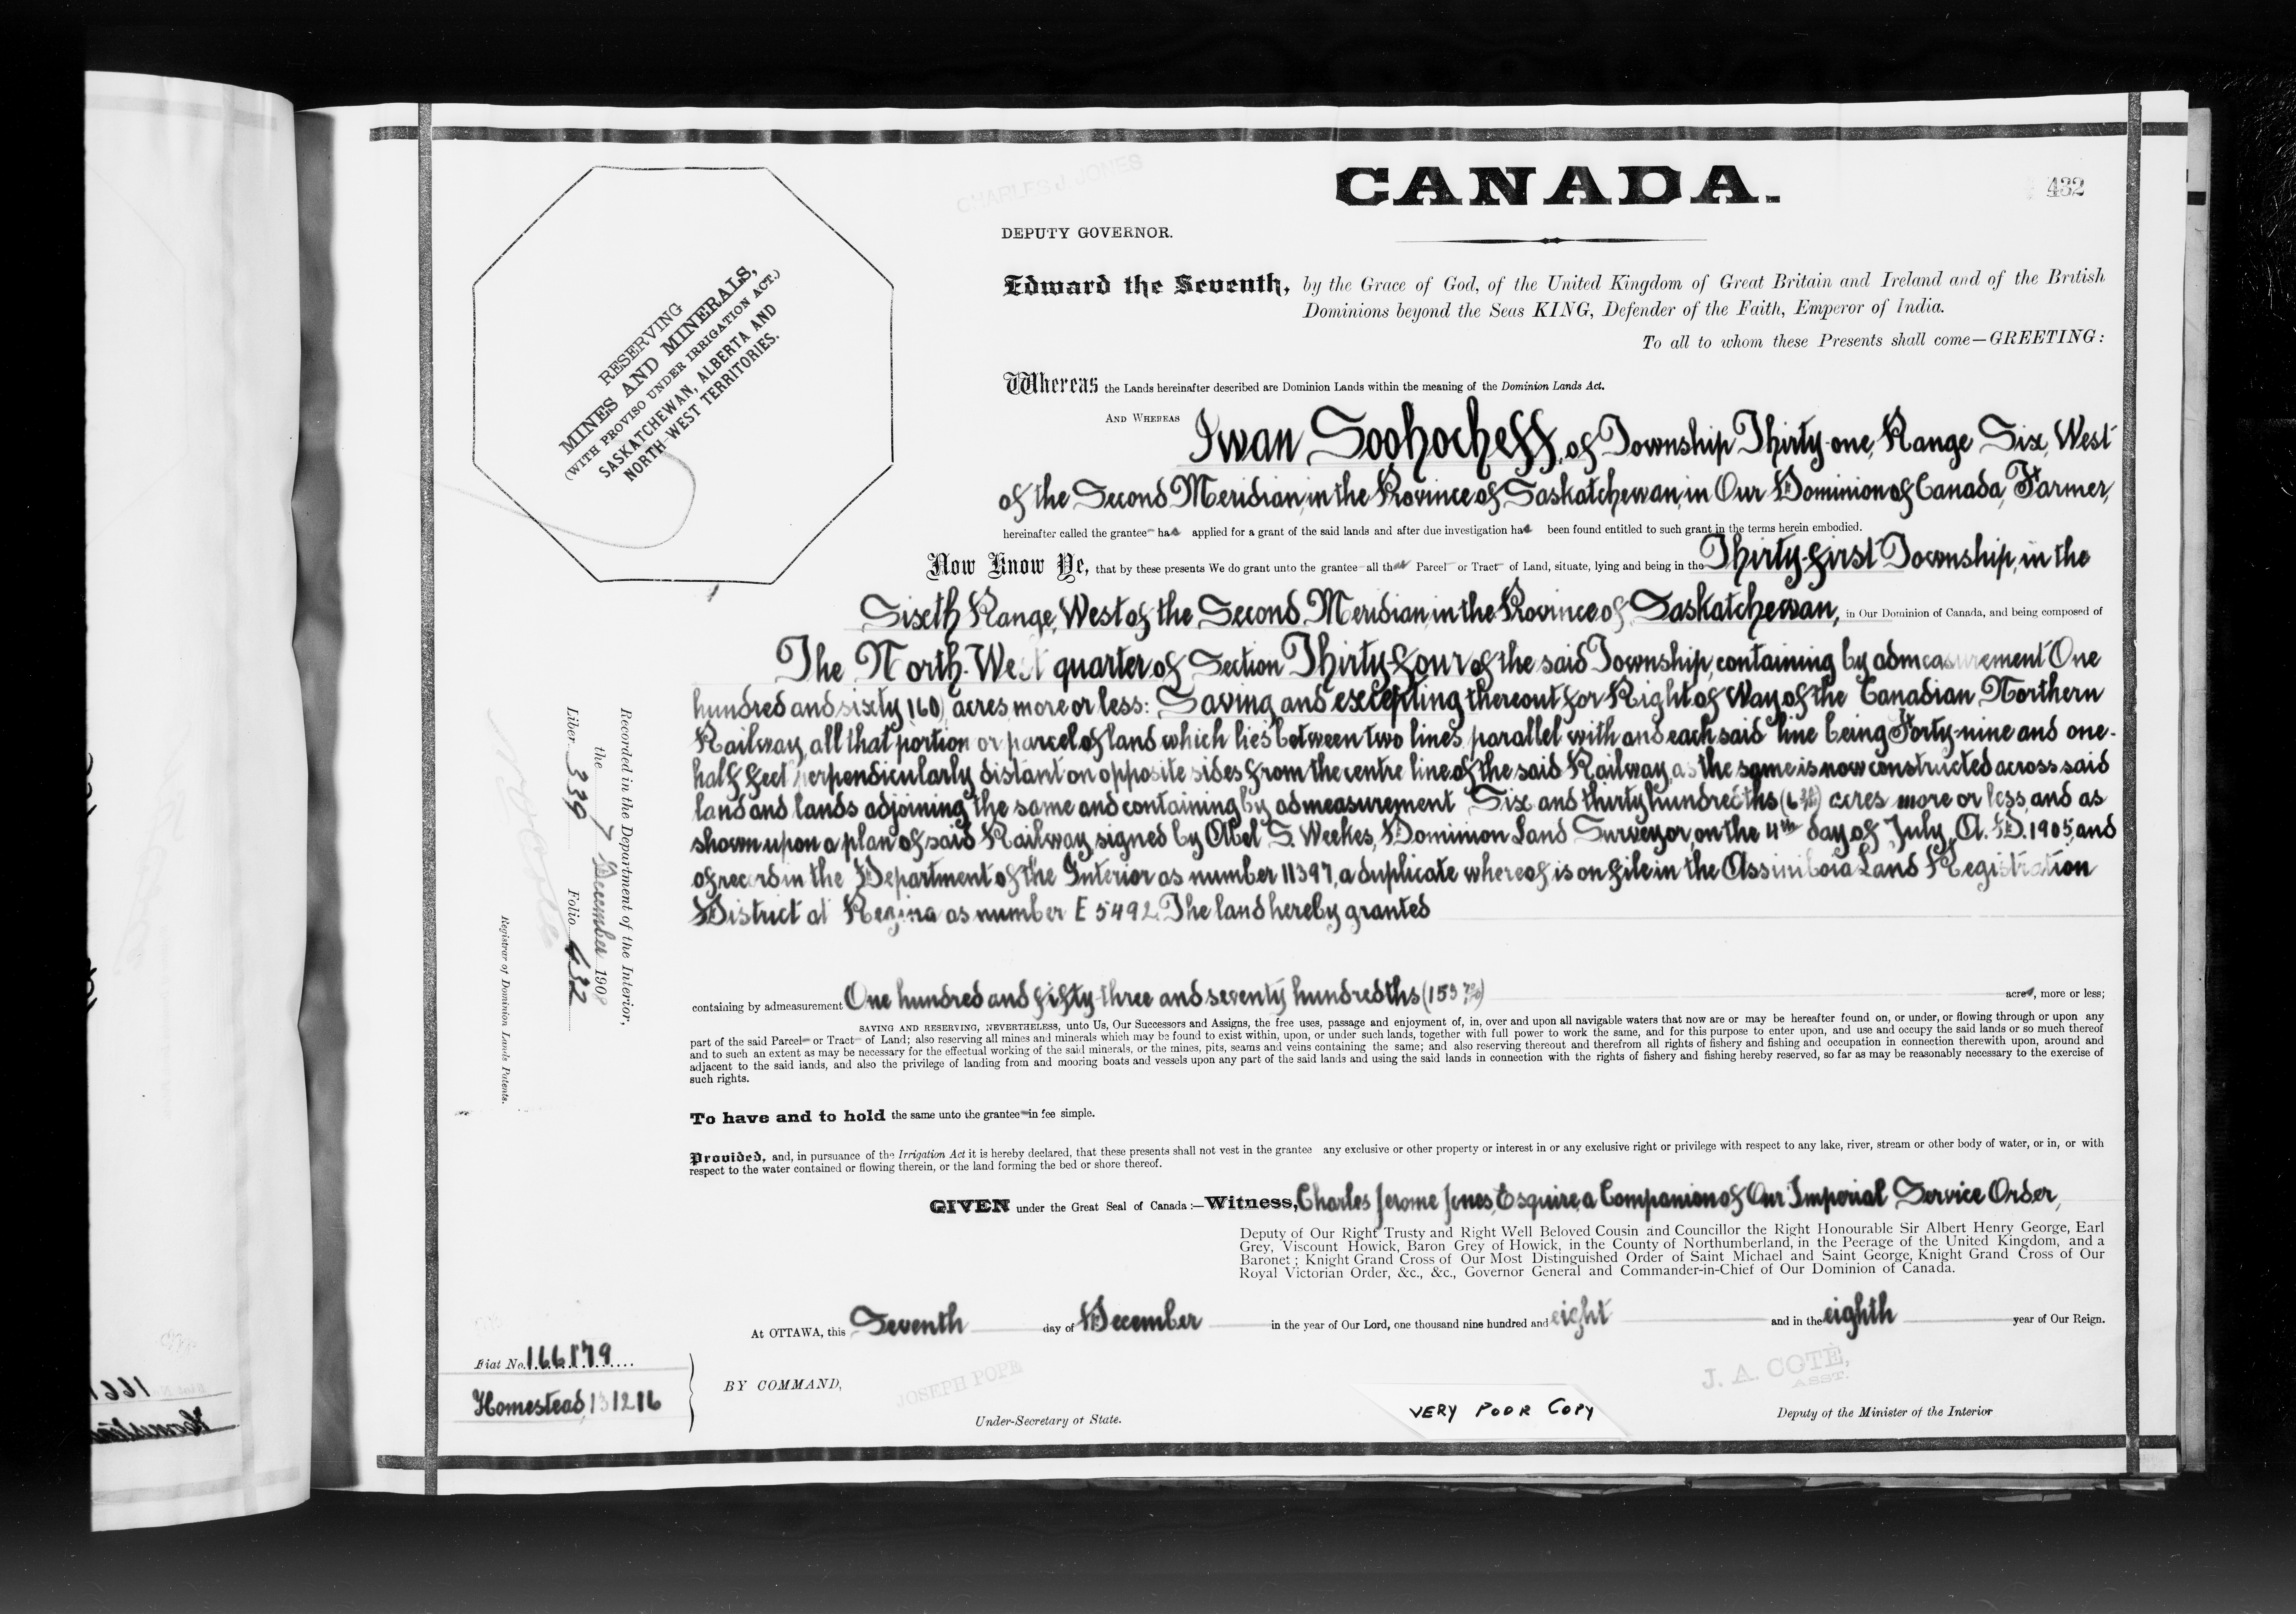 CHARLES J. JONES
CANADA.
432
DEPUTY GOVERNOR.
Edward the Seventh, by the Grace of God, of the United Kingdom of Great Britain and Ireland and of the British
Dominions beyond the Seas KING, Defender of the Faith, Emperor of India.
To all to whom these Presents shall come—GREETING:
RESERVING
MINES AND MINERALS,
(WITH PROVISO UNDER IRRIGATION ACT.)
SASKATCHEWAN, ALBERTA AND
NORTH-WEST TERRITORIES.
Whereas the Lands hereinafter described are Dominion Lands within the meaning of the Dominion Lands Act.
AND WHEREAS Iwan Soohocheff, of Township Thirty-one, Range Six, West
of the Second Meridian, in the Province of Saskatchewan, in Our Dominion of Canada, Farmer,
hereinafter called the grantee has applied for a grant of the said lands and after due investigation has been found entitled to such grant in the terms herein embodied.
Now Know Ye, that by these presents We do grant unto the grantee all that Parcel or Tract of Land, situate, lying and being in the Thirty-first Township, in the
Sixth Range, West of the Second Meridian, in the Province of Saskatchewan, in Our Dominion of Canada, and being composed of
The North-West quarter of Section Thirty-four of the said Township, containing by admeasurement One
hundred and sixty (160) acres, more or less: Saving and excepting thereout for Right of Way of the Canadian Northern
Railway, all that portion or parcel of land which lies between two lines parallel with and each said line being Forty-nine and one-
half feet perpendicularly distant on opposite sides from the centre line of the said Railway, as the same is now constructed across said
land and lands adjoining the same and containing by admeasurement Six and thirty hundredths (6 30/100) acres more or less, and as
shown upon a plan of said Railway signed by Abel S. Weekes, Dominion Land Surveyor, on the 4th day of July, A. D. 1905, and
of record in the Department of the Interior as number 11397, a duplicate whereof is on file in the Assiniboia Land Registration
District at Regina as number E 5492. The land hereby granted
containing by admeasurement One hundred and fifty-three and seventy hundredths (153 70/100) acres, more or less;
SAVING AND RESERVING, NEVERTHELESS, unto Us, Our Successors and Assigns, the free uses, passage and enjoyment of, in, over and upon all navigable waters that now are or may be hereafter found on, or under, or flowing through or upon any
part of the said Parcel or Tract of Land; also reserving all mines and minerals which may be found to exist within, upon, or under such lands, together with full power to work the same, and for this purpose to enter upon, and use and occupy the said lands or so much thereof
and to such an extent as may be necessary for the effectual working of the said minerals, or the mines, pits, seams and veins containing the same; and also reserving thereout and therefrom all rights of fishery and fishing and occupation in connection therewith upon, around and
adjacent to the said lands, and also the privilege of landing from and mooring boats and vessels upon any part of the said lands and using the said lands in connection with the rights of fishery and fishing hereby reserved, so far as may be reasonably necessary to the exercise of
such rights.
To have and to hold the same unto the grantee in fee simple.
Provided, and, in pursuance of the Irrigation Act it is hereby declared, that these presents shall not vest in the grantee any exclusive or other property or interest in or any exclusive right or privilege with respect to any lake, river, stream or other body of water, or in, or with
respect to the water contained or flowing therein, or the land forming the bed or shore thereof.
GIVEN under the Great Seal of Canada:—Witness, Charles Jerome Jones, Esquire, a Companion of Our Imperial Service Order,
Deputy of Our Right Trusty and Right Well Beloved Cousin and Councillor the Right Honourable Sir Albert Henry George, Earl
Grey, Viscount Howick, Baron Grey of Howick, in the County of Northumberland, in the Peerage of the United Kingdom, and a
Baronet; Knight Grand Cross of Our Most Distinguished Order of Saint Michael and Saint George, Knight Grand Cross of Our
Royal Victorian Order, &c., &c., Governor General and Commander-in-Chief of Our Dominion of Canada.
At OTTAWA, this Seventh day of December in the year of Our Lord, one thousand nine hundred and eight and in the eighth year of Our Reign.
BY COMMAND,
JOSEPH POPE
Under-Secretary of State.
VERY POOR COPY
J. A. COTÉ,
ASST.
Deputy of the Minister of the Interior
Fiat No. 166179
Homestead, 131216
Recorded in the Department of the Interior,
the 7 December 1908
Liber 339 Folio 432
Registrar of Dominion Lands Patents.